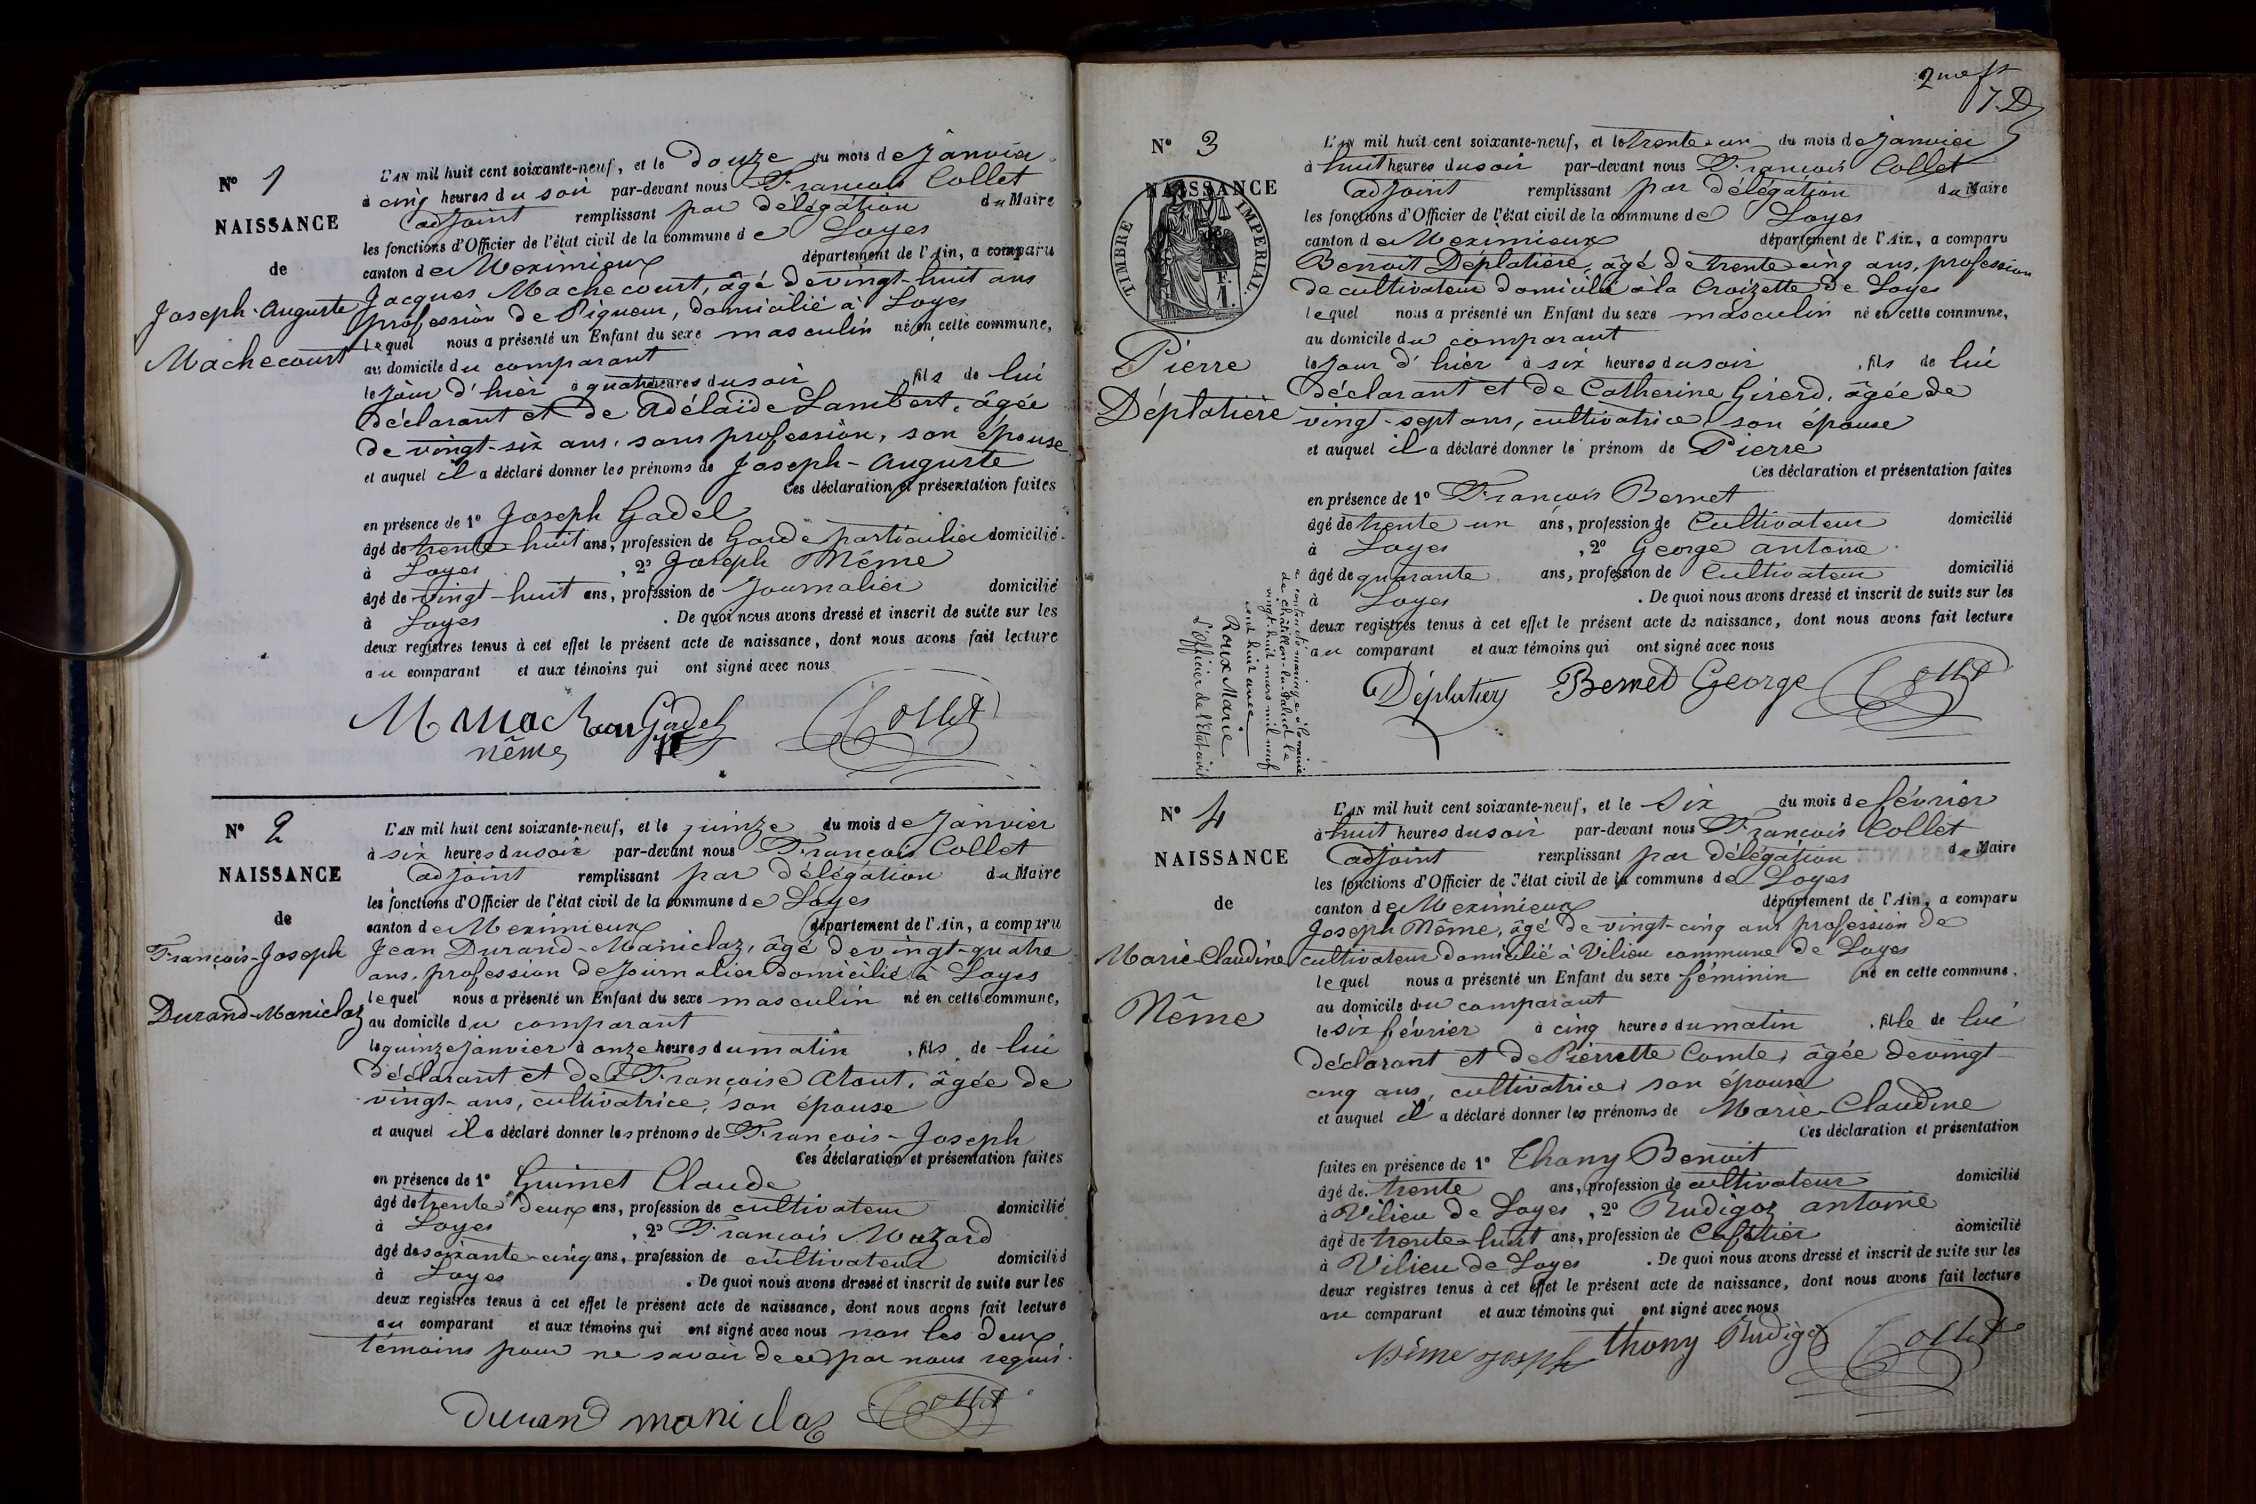 N° 1
NAISSANCE
de
Joseph-Auguste
Machecourt
L'AN mil huit cent soixante-neuf, et le Douze du mois de Janvier
à cinq heures du soir par-devant nous François Collet
adjoint remplissant par délégation du Maire
les fonctions d'Officier de l'état civil de la commune de Loyes
canton de Meximieux département de l'Ain, a comparu
Jacques Machecourt, âgé de vingt-huit ans
profession de Piqueur, domicilié à Loyes
lequel nous a présenté un Enfant du sexe masculin né en cette commune,
au domicile du comparant
le jour d'hier à quatre heures du soir, fils de lui
déclarant et de Adélaïde Lambert, âgée
de vingt-six ans, sans profession, son épouse
et auquel il a déclaré donner les prénoms de Joseph-Auguste
Ces déclaration et présentation faites
en présence de 1° Joseph Gadel
âgé de trente huit ans, profession de Garde particulier domicilié
à Loyes, 2° Joseph Même
âgé de vingt-huit ans, profession de Journalier domicilié
à Loyes. De quoi nous avons dressé et inscrit de suite sur les
deux registres tenus à cet effet le présent acte de naissance, dont nous avons fait lecture
au comparant et aux témoins qui ont signé avec nous
Gadel Collet
même
N° 2
NAISSANCE
de
François-Joseph
Durand-Maniclaz
L'AN mil huit cent soixante-neuf, et le quinze du mois de Janvier
à six heures du soir par-devant nous François Collet
adjoint remplissant par délégation du Maire
les fonctions d'Officier de l'état civil de la commune de Loyes
canton de Meximieux département de l'Ain, a comparu
Jean Durand-Maniclaz, âgé de vingt-quatre
ans, profession de Journalier domicilié à Loyes
lequel nous a présenté un Enfant du sexe masculin né en cette commune,
au domicile du comparant
le quinze janvier à onze heures du matin, fils de lui
déclarant et de Françoise Atout, âgée de
vingt-ans, cultivatrice, son épouse
et auquel il a déclaré donner les prénoms de François-Joseph
Ces déclaration et présentation faites
en présence de 1° Guimet Claude
âgé de trente deux ans, profession de cultivateur domicilié
à Loyes, 2° François Mazard
âgé de soixante-cinq ans, profession de cultivateur domicilié
à Loyes. De quoi nous avons dressé et inscrit de suite sur les
deux registres tenus à cet effet le présent acte de naissance, dont nous avons fait lecture
au comparant et aux témoins qui ont signé avec nous non les deux
témoins pour ne savoir de ce par nous requis.
durand maniclaz Collet
2me ft
J. D
N° 3
NAISSANCE
TIMBRE IMPERIAL
Pierre
Déplatière
L'AN mil huit cent soixante-neuf, et le trente-un du mois de Janvier
à huit heures du soir par-devant nous François Collet
adjoint remplissant par délégation du Maire
les fonctions d'Officier de l'état civil de la commune de Loyes
canton de Meximieux département de l'Ain, a comparu
Benoit Déplatière, âgé de trente cinq ans, profession
de cultivateur domicilié à la Croizette de Loyes
lequel nous a présenté un Enfant du sexe masculin né en cette commune,
au domicile du comparant
le jour d'hier à six heures du soir, fils de lui
déclarant et de Catherine Girerd, âgée de
vingt-sept ans, cultivatrice son épouse
et auquel il a déclaré donner le prénom de Pierre
Ces déclaration et présentation faites
en présence de 1° François Bernet
âgé de trente un ans, profession de Cultivateur domicilié
à Loyes, 2° George antoine
âgé de quarante ans, profession de Cultivateur domicilié
à Loyes. De quoi nous avons dressé et inscrit de suite sur les
deux registres tenus à cet effet le présent acte de naissance, dont nous avons fait lecture
au comparant et aux témoins qui ont signé avec nous
Bernet George Collet
a contracté mariage à la mairie
de Châtillon-la-Palud le
vingt-huit mars mil neuf
cent huit avec
Roux Marie
L'officier de l'Etat civil
N° 4
NAISSANCE
de
Marie-Claudine
Même
L'AN mil huit cent soixante-neuf, et le Six du mois de février
à huit heures du soir par-devant nous François Collet
adjoint remplissant par délégation du Maire
les fonctions d'Officier de l'état civil de la commune de Loyes
canton de Meximieux département de l'Ain, a comparu
Joseph Même, âgé de vingt-cinq ans profession de
cultivateur domicilié à Vilieu commune de Loyes
lequel nous a présenté un Enfant du sexe féminin né en cette commune,
au domicile du comparant
le six février à cinq heures du matin, fille de lui
déclarant et de Pierrette Comte, âgée de vingt-
cinq ans, cultivatrice, son épouse
et auquel il a déclaré donner les prénoms de Marie-Claudine
Ces déclaration et présentation
faites en présence de 1° Thony Benoit
âgé de trente ans, profession de cultivateur domicilié
à Vilieu de Loyes, 2° Rudigoz antoine
âgé de trente-huit ans, profession de Cafetier domicilié
à Vilieu de Loyes. De quoi nous avons dressé et inscrit de suite sur les
deux registres tenus à cet effet le présent acte de naissance, dont nous avons fait lecture
au comparant et aux témoins qui ont signé avec nous
même joseph thony Rudigoz Collet